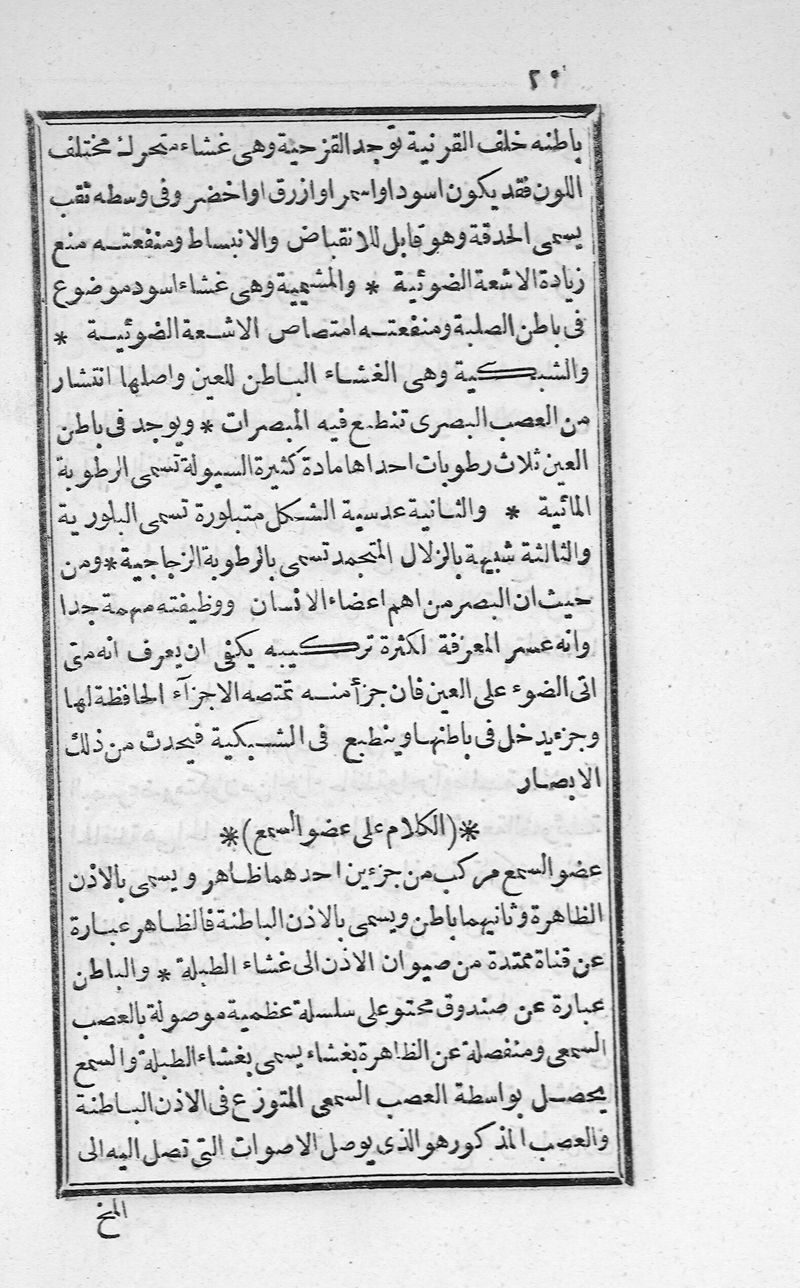 ٢٩
باطنه خلف القرنية توجد القزحية وهى غشاء متحرك مختلف
اللون فقد يكون اسود او اسمر او ازرق او اخضر وفى وسطه ثقب
يسمى الحدقة وهو قابل للانقباض والانبساط ومنفعته منع
زيادة الاشعة الضوئية * والمشيمية وهى غشاء اسود موضوع
فى باطن الصلبة ومنفعته امتصاص الاشعة الضوئية *
والشبكية وهى الغشاء الباطن للعين واصلها انتشار
من العصب البصرى تنطبع فيه المبصرات * ويوجد فى باطن
العين ثلاث رطوبات احداها مادة كثيرة السيولة تسمى الرطوبة
المائية * والثانية عدسية الشكل متبلورة تسمى البلورية
والثالثة شبيهة بالزلال المتجمد تسمى بالرطوبة الزجاجية * ومن
حيث ان البصر من اهم اعضاء الانسان ووظيفته مهمة جدا
وانه عسر المعرفة لكثرة تركيبه يكفى ان يعرف انه متى
اتى الضوء على العين فان جزأ منه تمتصه الاجزآء الحافظة لها
وجزء يدخل فى باطنها وينطبع فى الشبكية فيحدث من ذلك
الابصار
*(الكلام على عضو السمع)*
عضو السمع مركب من جزءين احدهما ظاهر ويسمى بالاذن
الظاهرة وثانيهما باطن ويسمى بالاذن الباطنة فالظاهر عبارة
عن قناة ممتدة من صيوان الاذن الى غشاء الطبلة * والباطن
عبارة عن صندوق محتو على سلسلة عظمية موصولة بالعصب
السمعى ومنفصلة عن الظاهرة بغشاء يسمى بغشاء الطبلة والسمع
يحصل بواسطة العصب السمعى المتوزع فى الاذن الباطنة
والعصب المذكور هو الذى يوصل الاصوات التى تصل اليه الى
المخ